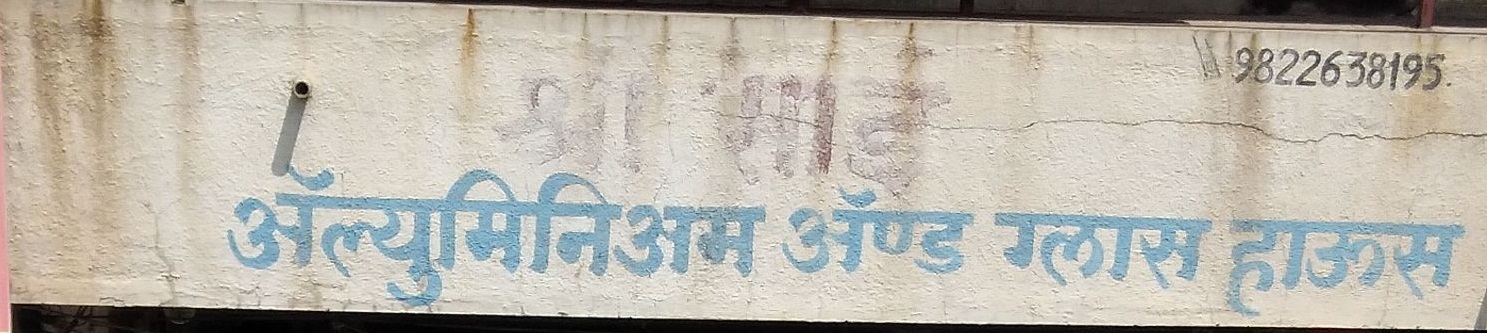 9822638195.
श्री साई
ॲल्युमिनिअम ॲण्ड ग्लास हाऊस